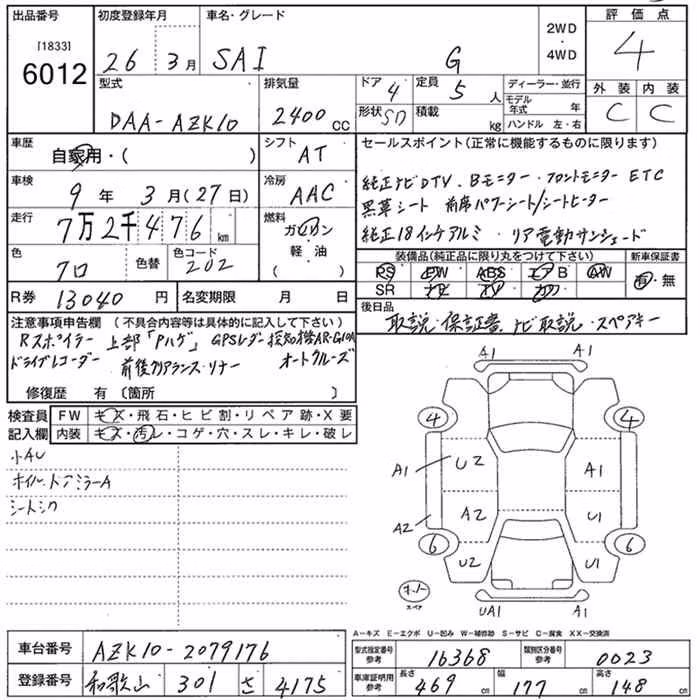 出品番号
[1833]
6012
初度登録年月
26 3月
車名・グレード
SAI G
2WD
・
4WD
評価点
4
外装 内装
C C
型式
DAA-AZK10
排気量
2400 CC
ドア 4
形状 SD
定員 5 人
積載 kg
ディーラー・並行
モデル年式 年
ハンドル 左・右
車歴
自家用・( )
シフト
AT
車検
9年 3月(27日)
冷房
AAC
走行
7万2千476 km
燃料
ガソリン
軽・油
( )
色
クロ
色替
色コード
202
R券 13040 円
名変期限 月 日
セールスポイント(正常に機能するものに限ります)
純正ナビDTV.Bモニター・フロントモニター ETC
黒革シート 前席パワーシート/シートヒーター
純正18インチアルミ・リア電動サンシェード
装備品(純正品に限り丸をつけて下さい)
PS PW ABS エアB AW
SR ナビ TV カワ
新車保証書
有・無
後日品
取説・保証書 ナビ取説・スペアキー
注意事項申告欄 (不具合内容等は具体的に記入して下さい)
Rスポイラー 上部「Pハゲ」 GPSレーダー探知機AR-G10A
ドライブレコーダー 前後クリアランス・ソナー オートクルーズ
修復歴 有 〔箇所 〕
検査員 記入欄
FW キズ・飛石・ヒビ割・リペア跡・X要
内装 キズ・汚レ・コゲ・穴・スレ・キレ・破レ
小AU
ホイル.ドアミラーA
シートシワ
A1
A1
4 4
A1 U2 A1
A2 A2 U1
6 U2 U1 6
スペア
UA1 A1
A-キズ E-エクボ U-凹み W-補修跡 S-サビ C-腐食 XX-交換済
車台番号 AZK10-2079176
登録番号 和歌山 301 さ 4175
型式指定番号 参考 16368
類別区分番号 参考 0023
車庫証明用 参考
長さ 469 cm
幅 177 cm
高さ 148 cm